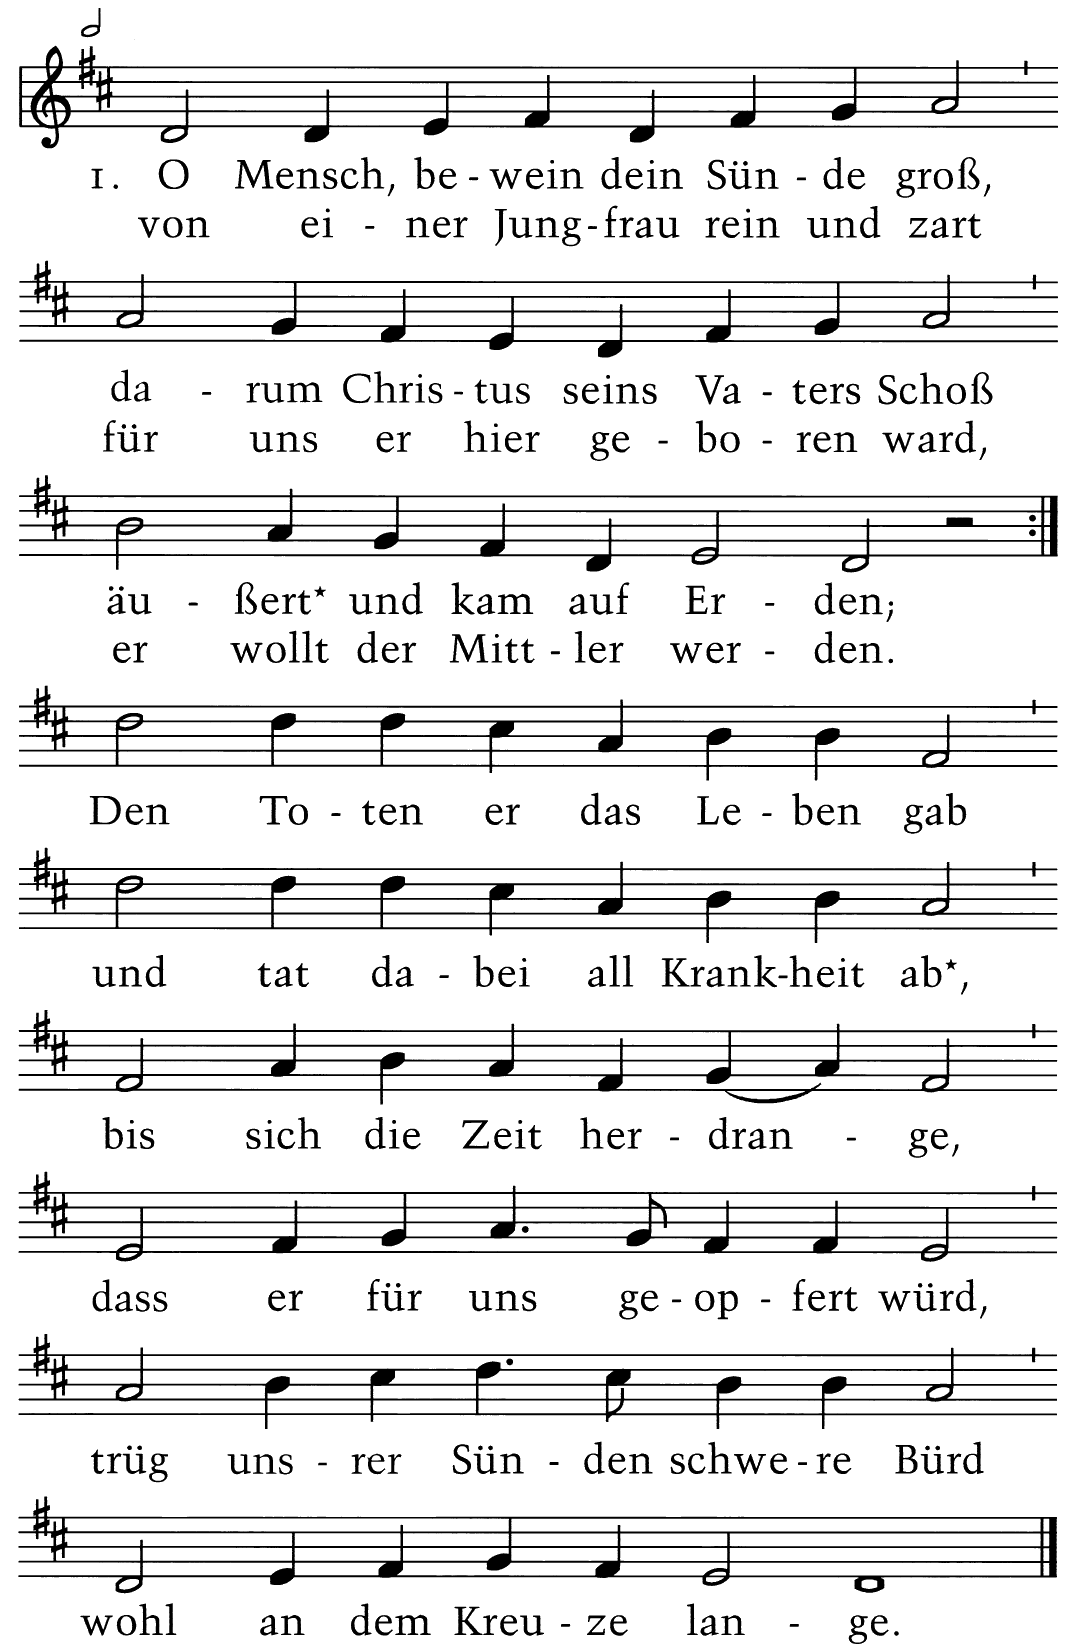 1. O Mensch, be - wein dein Sün - de groß,
von ei - ner Jung - frau rein und zart
da - rum Chris - tus seins Va - ters Schoß
für uns er hier ge - bo - ren ward,
äu - ßert* und kam auf Er - den;
er wollt der Mitt - ler wer - den.
Den To - ten er das Le - ben gab
und tat da - bei all Krank - heit ab*,
bis sich die Zeit her - dran - ge,
dass er für uns ge - op - fert würd,
trüg uns - rer Sün - den schwe - re Bürd
wohl an dem Kreu - ze lan - ge.